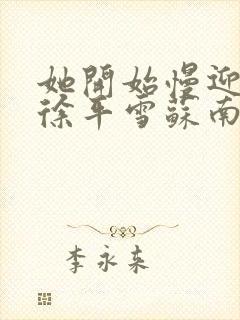 她開始慢迎
徐平雪蘇南
李永来